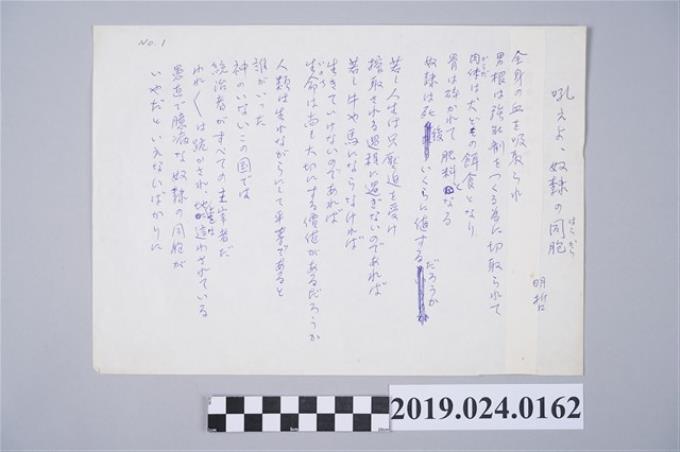 No.1
吼えよ、奴隷の同胞
はらから
明哲
全身の血を吸取られ
男根は強壮剤をつくる為に切取られて
肉体は犬どもの餌食となり
からだ
骨は砕かれて肥料となる
奴隷は死後いくらに値するだろうか
若し人生は只圧迫を受け
搾取される過程に過ぎないのであれば
若し牛や馬にならなければ
生きていけないのであれば
生命は尚も大切にする価値があるだろうか
人類は生れながらにして平等であると
誰がいった
神のいないこの国では
統治者がすべての主宰者だ
われ〱は跪かされ地に這わされている
愚直で臆病な奴隷の同胞が
いやだといえないばかりに
2019.024.0162